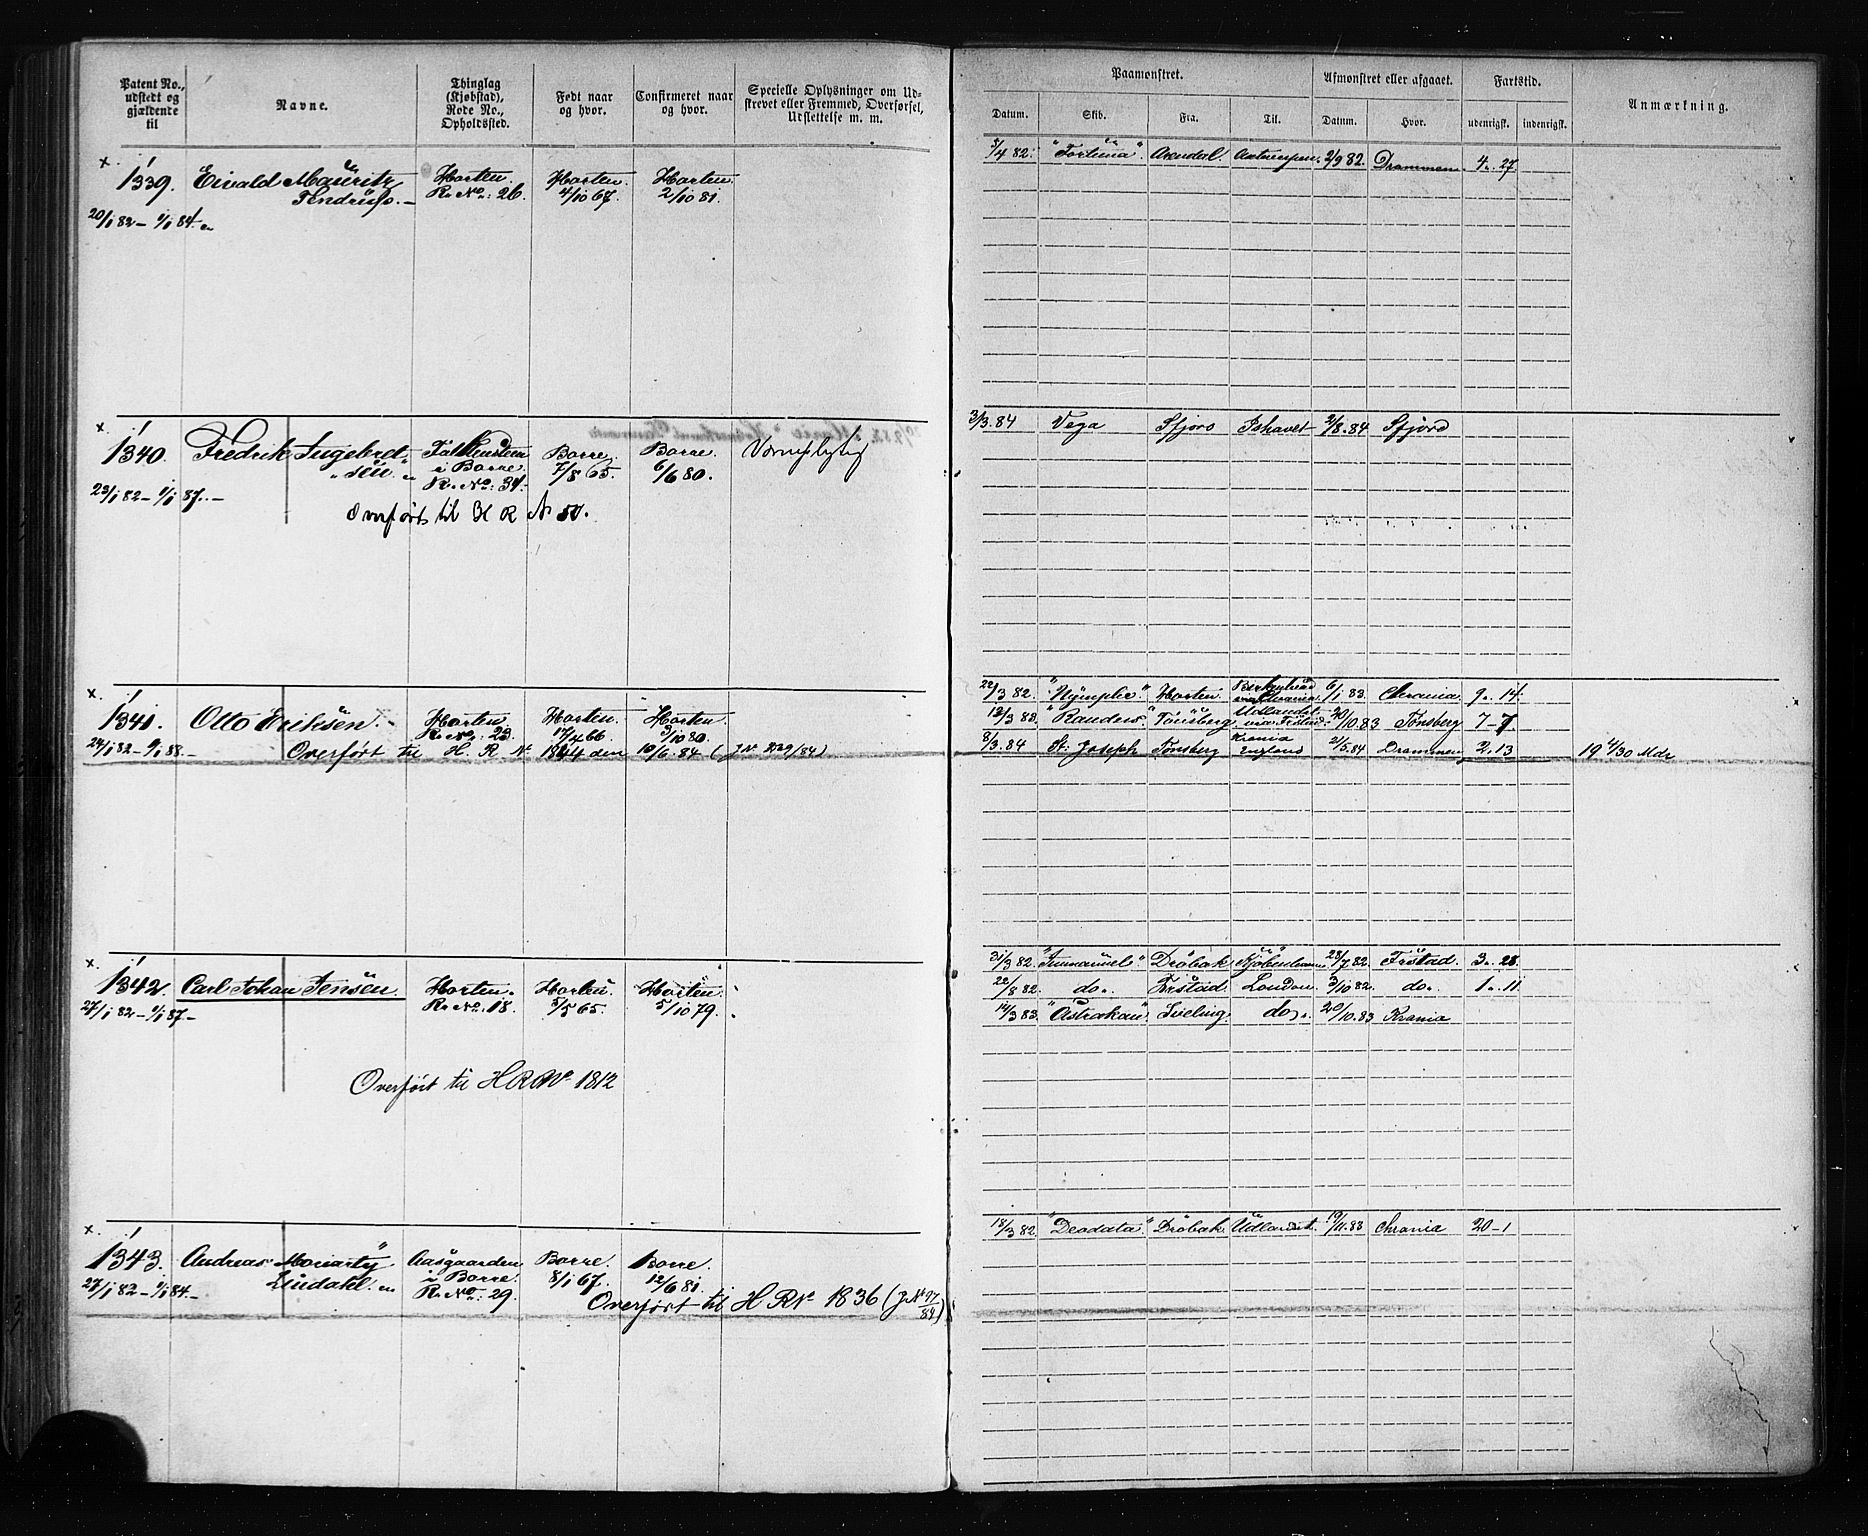 Patent No., udstedt og gjældende til
Navne.
Thinglag (Kjøbstad), Rode No., Opholdssted.
Født naar og hvor.
Confirmeret naar og hvor.
Specielle Oplysninger om Udskrevet eller Fremmed, Overførsel, Udslettelse m. m.
Paamønstret.
Afmønstret eller afgaaet.
Fartstid.
Anmærkning.
Datum. Skib. Fra. Til. Datum. Hvor. udenrigsk. indenrigsk.
x.
1339. Eivald Mauritz Horten. Horten. Horten.
R. No: 26. 4/10 67. 2/10 81.
20/1 82 - 1/1 84.
3/4 82. "Fortuna". Arendal. Antwerpen. 2/9 82. Drammen. 4. 27
x.
1340. Fredrik Ingebret Falkensteen Borre. Borre. Værnepligtig
sen. i Borre 7/8 65. 6/6 80.
R. No: 34.
23/1 82 - 1/1 87.
Overført til H R No 50.
3/3.84 Vega Sfjord Ishavet 2/8.84 Sfjord
x.
1341. Otto Eriksen. Horten. Horten. Horten.
R. No: 23. 17/4 66. 3/10 80.
24/1 82 - 1/1 88. Overført til H. R. No 1844 den 10/6.84 (J.No 229/84)
22/3 82. "Nymphe". Horten. 6/1 83. Chrania. 9. 14
12/3 83. "Randers". Tønsberg. Udlandet. via Frstad. 20/10.83 Tønsberg 7-7
8/3.84 St: Joseph Tønsberg Krania England 2/5.84 Drammen 2.13 19 4/30 Mdr
x.
1342. Carl Johan Jensen. Horten. Horten. Horten.
27/1 82 - 1/1 87 - R. No: 18. 5/5 65. 5/10 79.
Overført til H R No 1812
31/3 82. "Immanuel". Drøbak. Kjøbenhavn 28/7 82. Frstad. 3. 28.
22/8 82. do. Frstad. London. 3/10 82. do. 1. 11
14/3 83. "Astrakan" Svelvig. do. 20/10.83 Krania
x.
1343. Andreas Moriarty Aasgaarden Borre. Borre.
27/1 82 - 1/1 84. - Lindahl. i Borre. 8/1 67. 12/6 81.
R. No: 29.
Overført til H R No 1836 (J No 97/84)
18/3 82. "Deodata" Drøbak. Udlandet. 19/11.83 Chrania 20-1